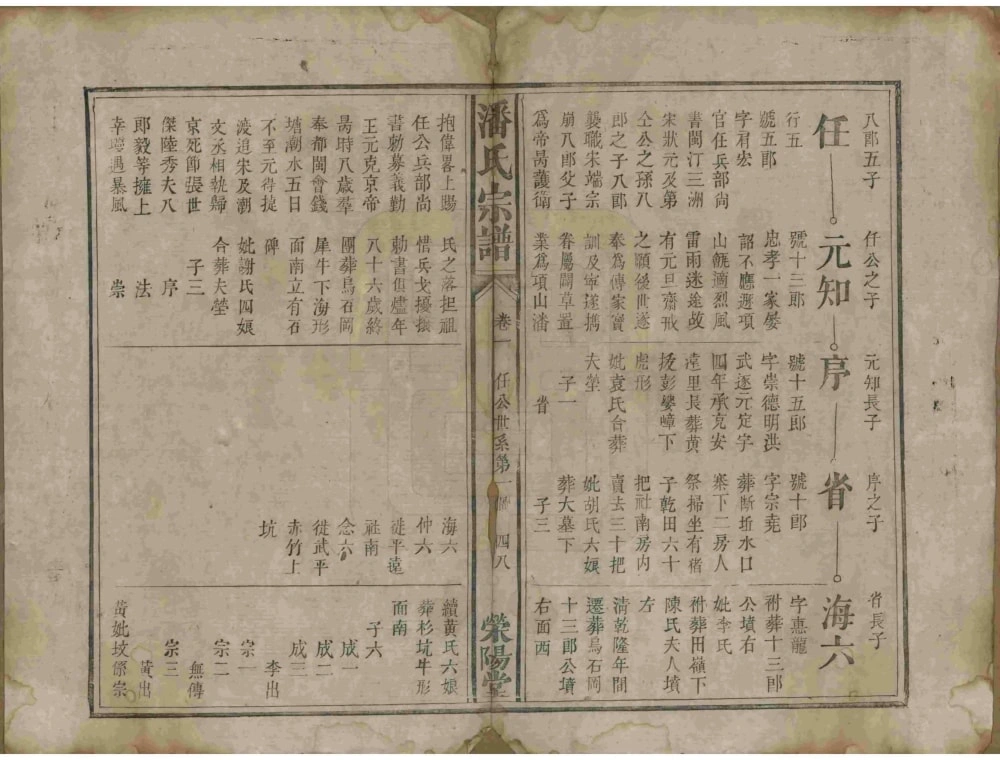 八郎五子
任
行五
號五郎
字君宏
官任兵部尚
書閩汀三洲
宋狀元及第
仝公之孫八
郎之子八郎
襲職宋端宗
崩八郎父子
為帝昺護衛
抱偉畧上賜
任公兵部尚
書勅募義勤
王元克京帝
昺時八歲羣
奉都閩會錢
塘潮水五日
不至元得捷
渡追宋及潮
文丞相執歸
京死節張世
傑陸秀夫八
郎毅等擁上
幸遇暴風
任公之子
元知
號十三郎
忠孝一家屡
詔不應遷項
山甑適烈風
雷雨迷途故
有元旦齋戒
之願後世遂
奉為傳家寶
訓及寧遂携
眷屬闢草置
業為項山潘
氏之落担祖
惜兵戈擾攘
勅書俱爐年
八十六歲終
團葬烏石岡
犀牛下海形
面南立有石
碑
妣謝氏四娘
合葬夫塋
子三
序
法
崇
元知長子
序
號十五郎
字崇德明洪
武逐元定字
四年承克安
遠里長葬黄
彭嶂下
虎形
妣袁氏合葬
夫塋
子一
省
序之子
省
號十郎
字宗堯
葬斷圻水口
寨下二房人
祭掃坐有猪
子乾田六十
把社南房内
賣去三十把
妣胡氏六娘
葬大墓下
子三
海六
仲六
徙平遠
社南
念六
徙武平
赤竹上
坑
省長子
海六
字惠龍
祔葬十三郎
公墳右
妣李氏
祔葬田嶺下
陳氏太人墳
左
清乾隆年間
遷葬烏石岡
十三郎公墳
右面西
續黄氏六娘
葬杉坑牛形
面南
子六
成一
成二
成三
李出
宗一
宗二
無傳
宗三
黄出
黄妣墳係宗
潘氏宗譜
卷一
任公世系第一
四八
榮陽堂